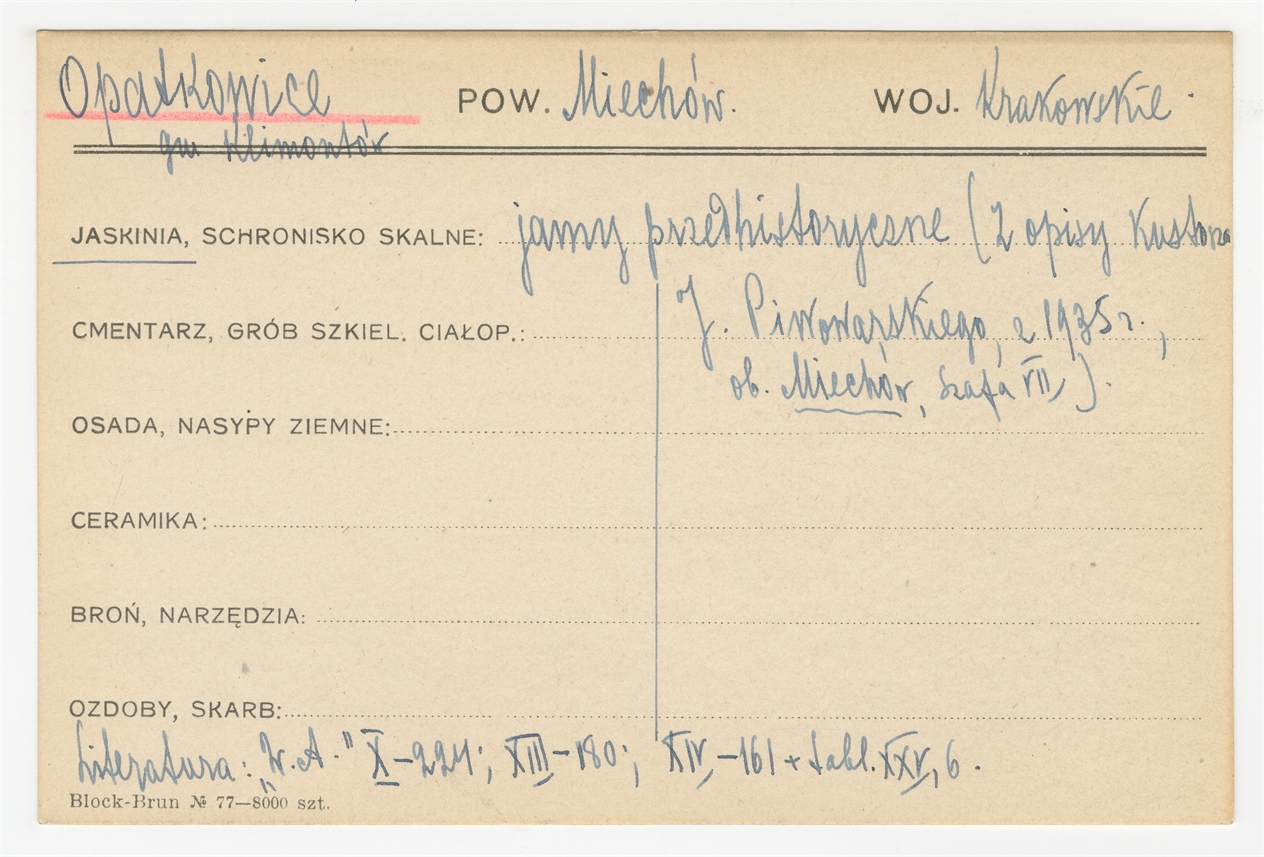 Opatkowice POW. Miechów. WOJ. Krakowskie.
gm Klimontów
JASKINIA, SCHRONISKO SKALNE: jamy przedhistoryczne (2 opisy Kustosza
CMENTARZ, GRÓB SZKIEL. CIAŁOP.: J. Piwowarskiego, z 1935 r.,
ob. Miechów, szafa VII).
OSADA, NASYPY ZIEMNE:
CERAMIKA:
BROŃ, NARZĘDZIA:
OZDOBY, SKARB:
Literatura: „W.A." X-224; XIII-180; XIV-161 + tabl. XXV, 6.
Block-Brun № 77—8000 szt.